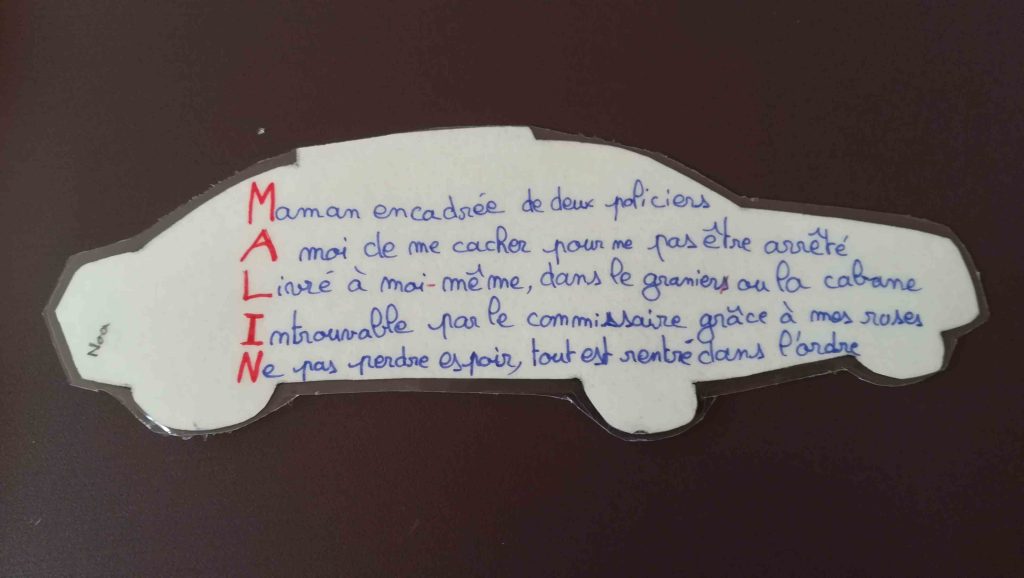 Maman encadrée de deux policiers
A moi de me cacher pour ne pas être arrêté
Livré à moi-même, dans le graniers ou la cabane
Introuvable par le commissaire grâce à mes roses
Ne pas perdre espoir, tout est rentré dans l'ordre
Noa